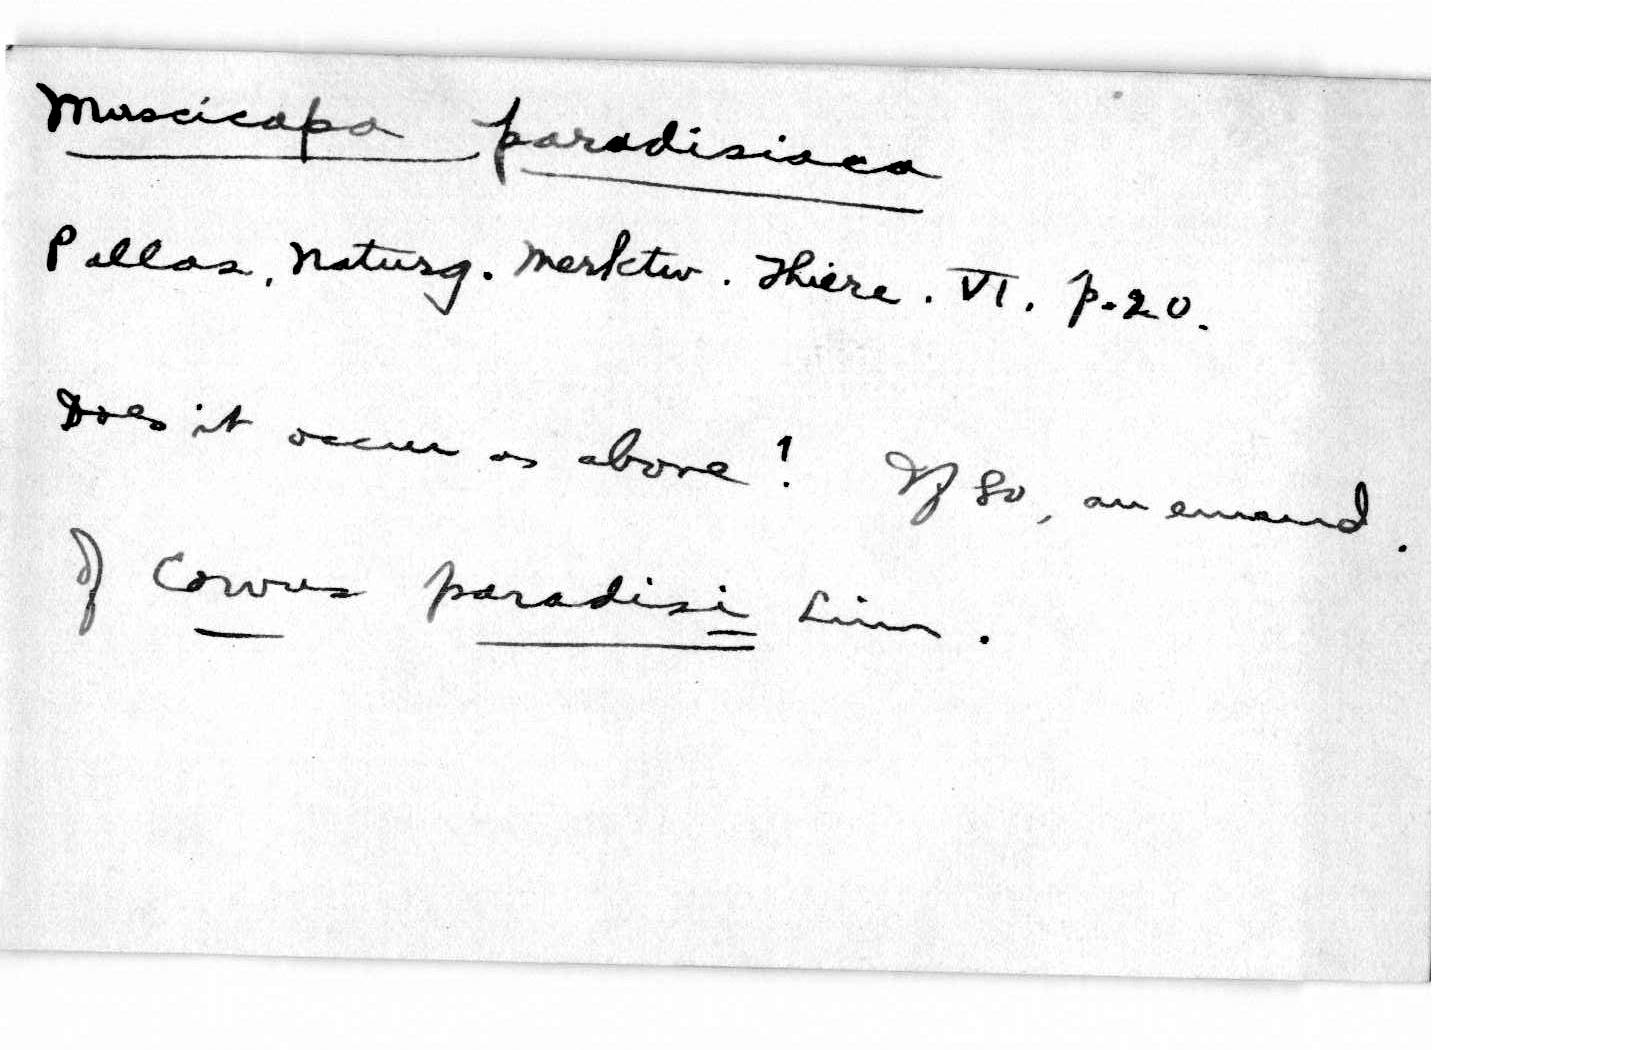 Muscicapa paradisiaca
Pallas, Naturg. Merktw. Thiere. VI. p. 20.
Does it occur as above? If so, an emend.
of Corvus paradisi Linn.